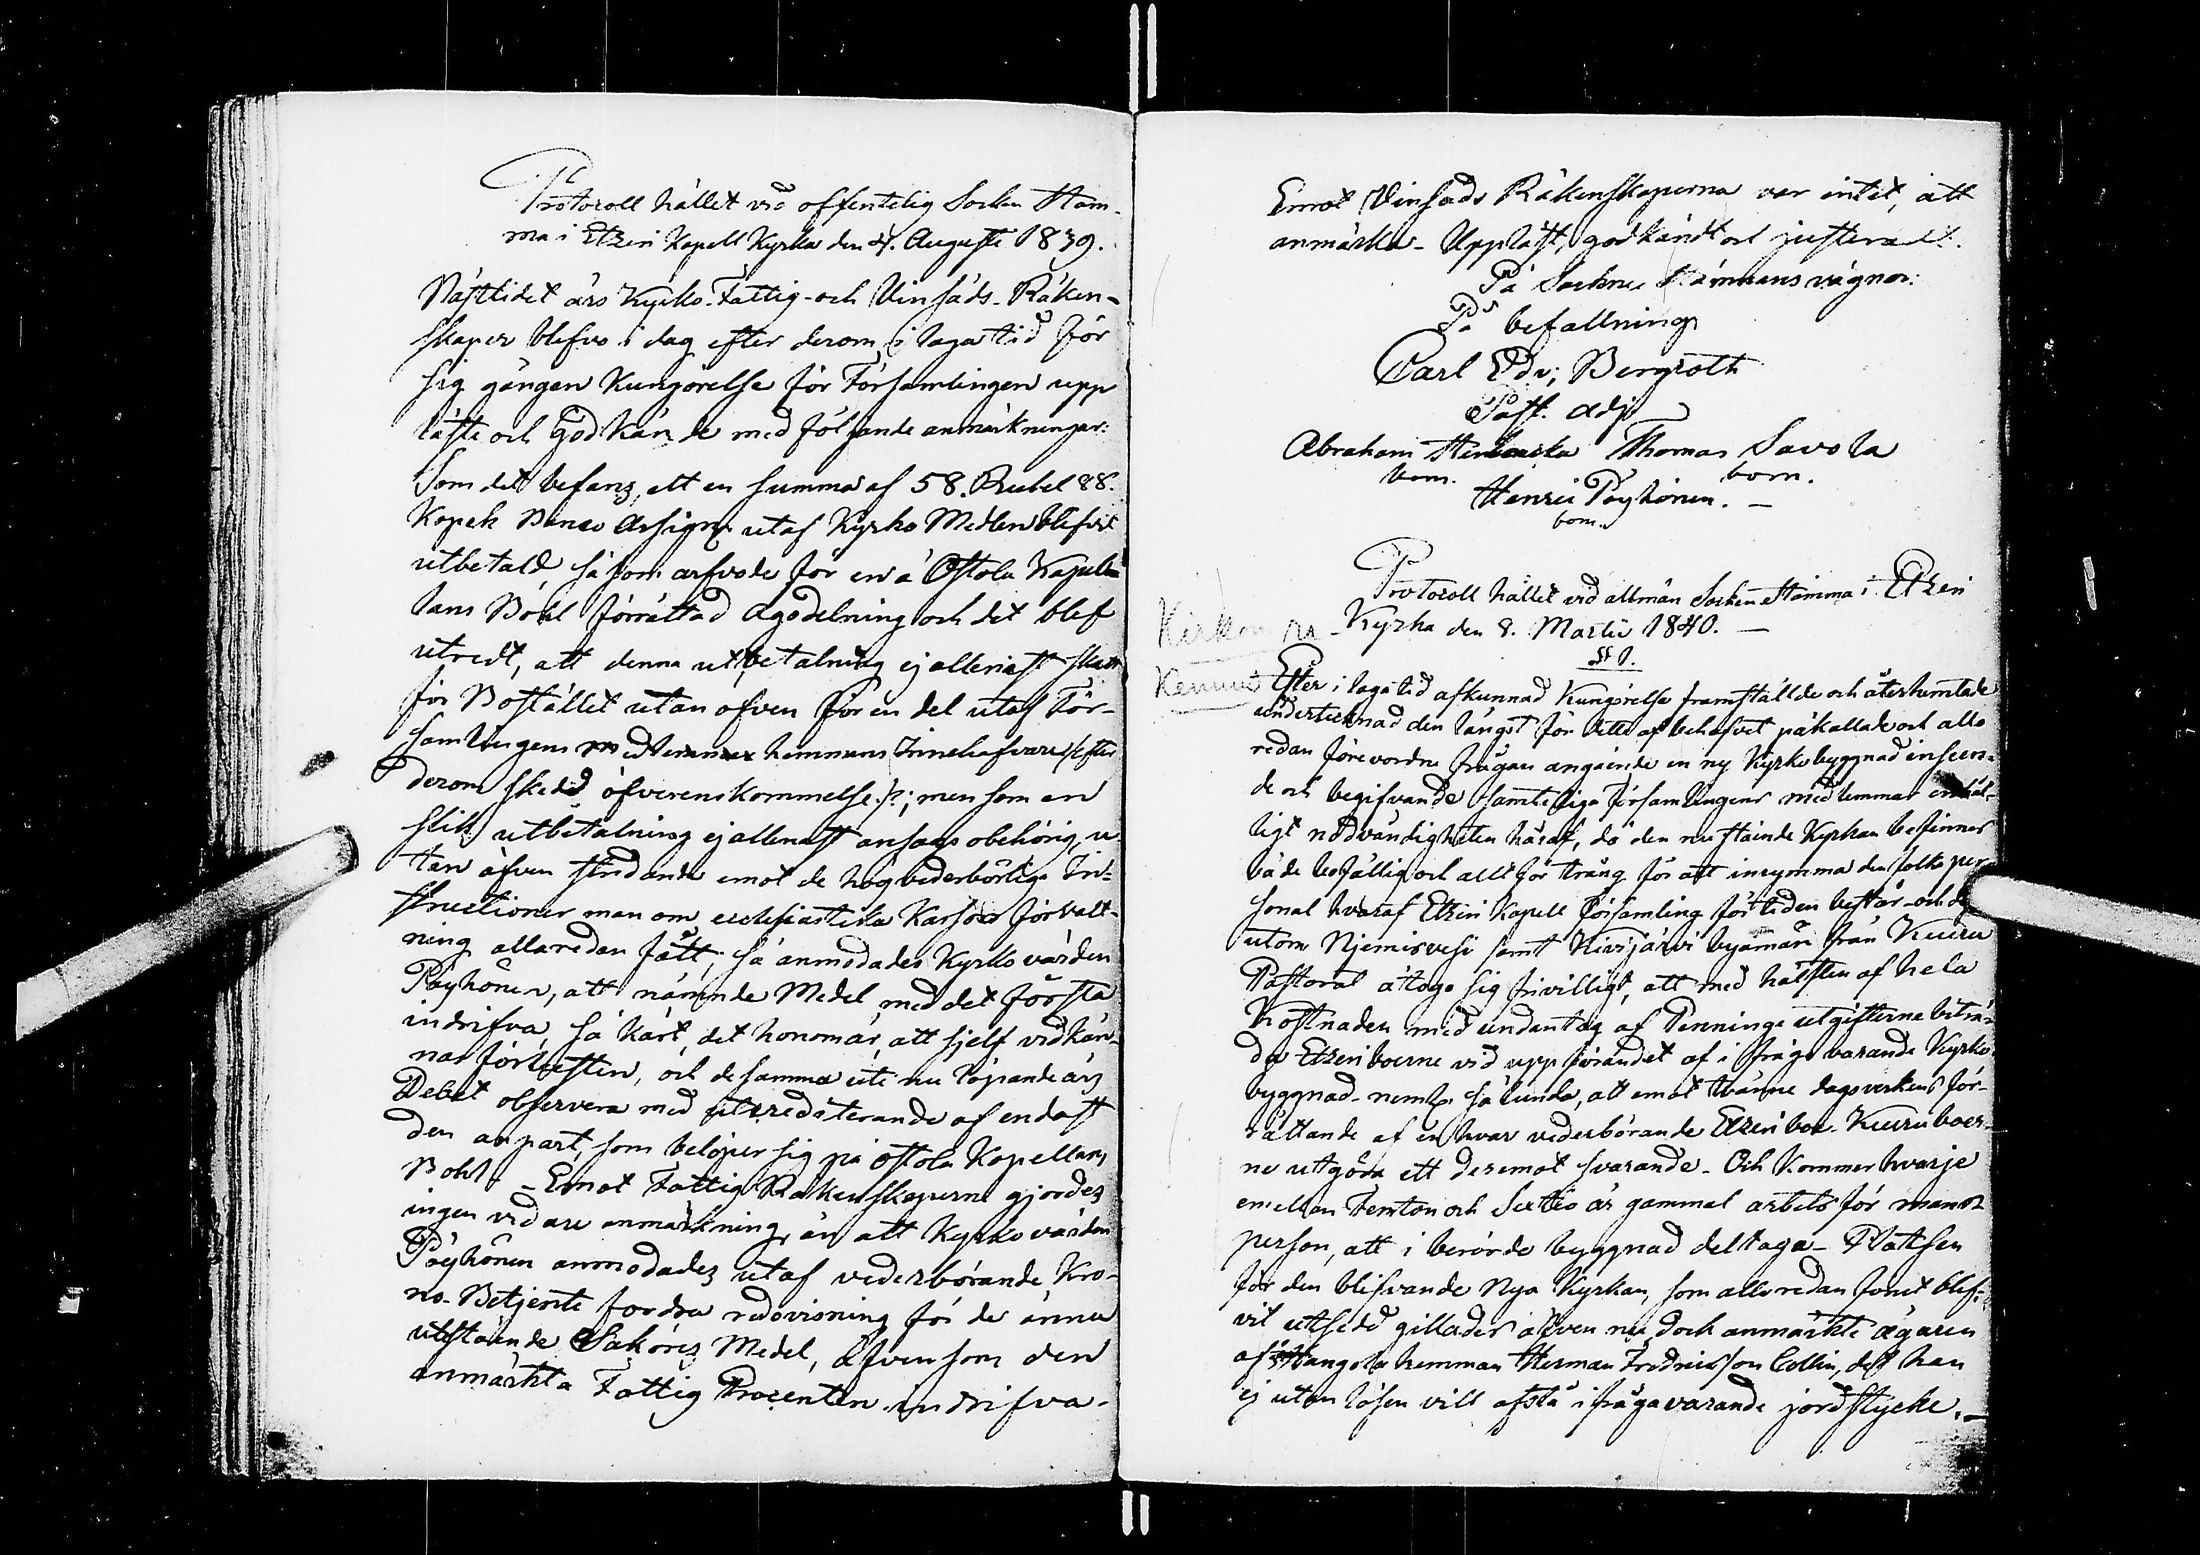 Protocoll hållet vid offentelig Socken Stäm-
ma i Etzeri Kapell Kyrka den 4. Augusti 1839.
Nästlidet års Kyrko- Fattig- och Vinsäds- Räken-
skaper blefvo i dag efter derom i laga tid för
sig gången Kungörelse för Församlingen upp
läste och Godkände med följande anmärkningar:
Som det befans, att en summa af 58. Rubel 88.
Kopek Banco Assign. utaf Kyrko Medlen blifvit
utbetald, såsom arfvode för en å Ostola Kapel-
lans Bohl förrättad Ägodelning och det blef
utredt, att denna utbetalning ej allenast skett
för Bostället utan äfven för en del utaf För-
samlingens hemmans Innehafvare efter
derom skedd öfverenskommelse; men som en
slik utbetalning ej allenast ansågs obehörig, u-
tan äfven stridande emot de hög vederbörliga In-
structioner man om ecclesiastika Kassors förvalt-
ning allaredan fått; så anmodades Kyrkovärden
Pöyhönen, att nämnde Medel, med det första
indrifva, så kärt det honom är, att sjelf vidkän-
nas förlusten, och desamma uti nu löpande års
Debet observera med utcrediterande af endast
den anpart, som belöper sig på Ostola Kapellans
Bohl. - Emot Fattig Räkenskaperne gjordes
ingen vidare anmärkning, än att Kyrkovärden
Pöyhönen anmodades utaf vederbörande Kro-
no-Betjente fordra redovisning för de ännu
utestående Saköres Medel, äfvensom den
anmärkta Fattig Procenten indrifva.
Emot Vinsäds Räkenskaperna var intet, att
anmärka - Uppläst, godkändt och justeradt.
På Sockne Stämmans vägnar:
På befallning
Carl Edv; Bergroth
Past. adj.
Abraham Thomas Savola
bom. bom.
Henric Pöyhönen. -
bom.
Protocoll hållet vid allmän Socken Stämma i Etzeri
Kyrka den 8. Martii 1840. -
§ 1.
Kirkon ra-
kennus
Efter i laga tid afkunnad Kungörelse framställde och återhemtade
undertecknad den längst för detta af behofvet påkallade och alla
redan förevordne frågan angående en ny Kyrkobyggnad inseen-
de och begifvande samteliga Församlingens medlemmar enhäl-
ligt nödvändigheten häraf, då den nu stående Kyrkan befinnes
både bofällig och allt för trång för att inrymma den folks per
sonal hvaraf Etzeri Kapell församling för tiden består - och
utom Njemisvesi samt Kivijärvi byamän från Kuuru
Pastorat åtogo sig frivilligt, att med hälften af hela
kostnaden med undantag af Penninge utgifterne biträ-
da Etzeriboerne vid uppförandet af i fråga varande Kyrko
byggnad - neml. sålunda, att emot tvänne dagsverkens för-
rättande af en hvar vederbörande Etzeribo - Kuuruboer-
ne utgöra ett deremot svarande - Och kommer hvarje
emellan Femton och Sextio år gammal arbetsför mans-
person, att i berörde byggnad deltaga - Platsen
för den blifvande Nya Kyrkan, som allaredan förut blif-
vit utsedd gillades äfven nu, dock anmärkte ägaren
af Hangola hemman Herman Fredricsson Collin, det han
ej utan lösen vill afstå ifrågavarande jordstycke. -